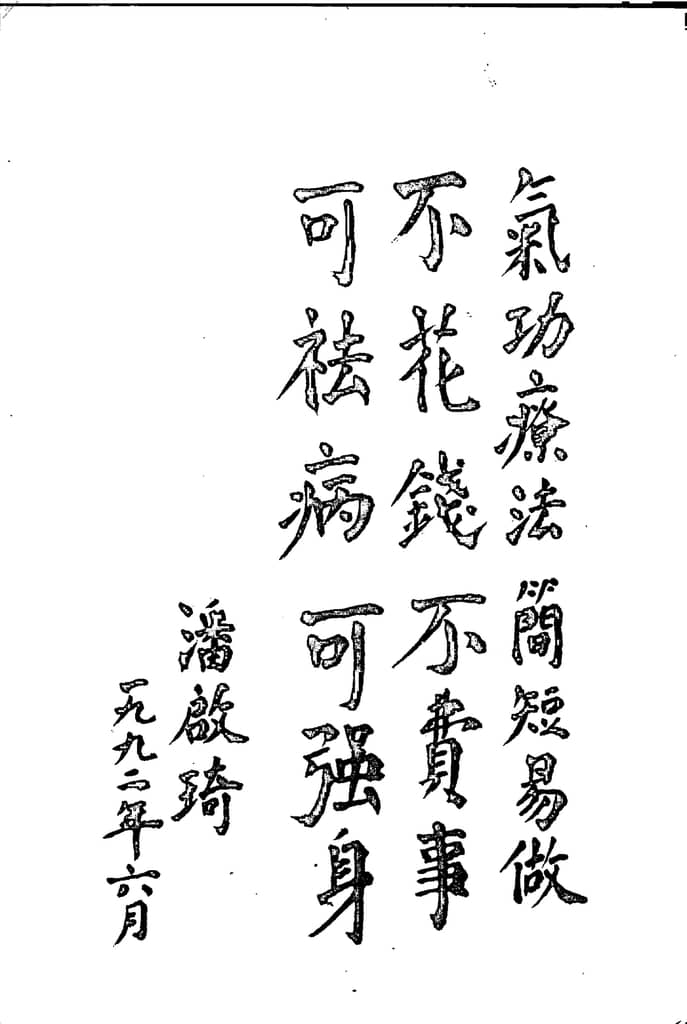 氣功療法簡短易做
不花錢不費事
可祛病可强身
潘啟琦
一九九二年六月